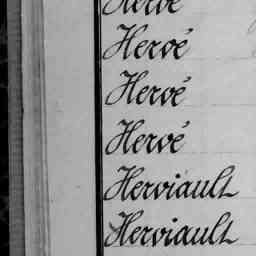 Hervé
Hervé
Hervé
Hervé
Herviault
Herviault